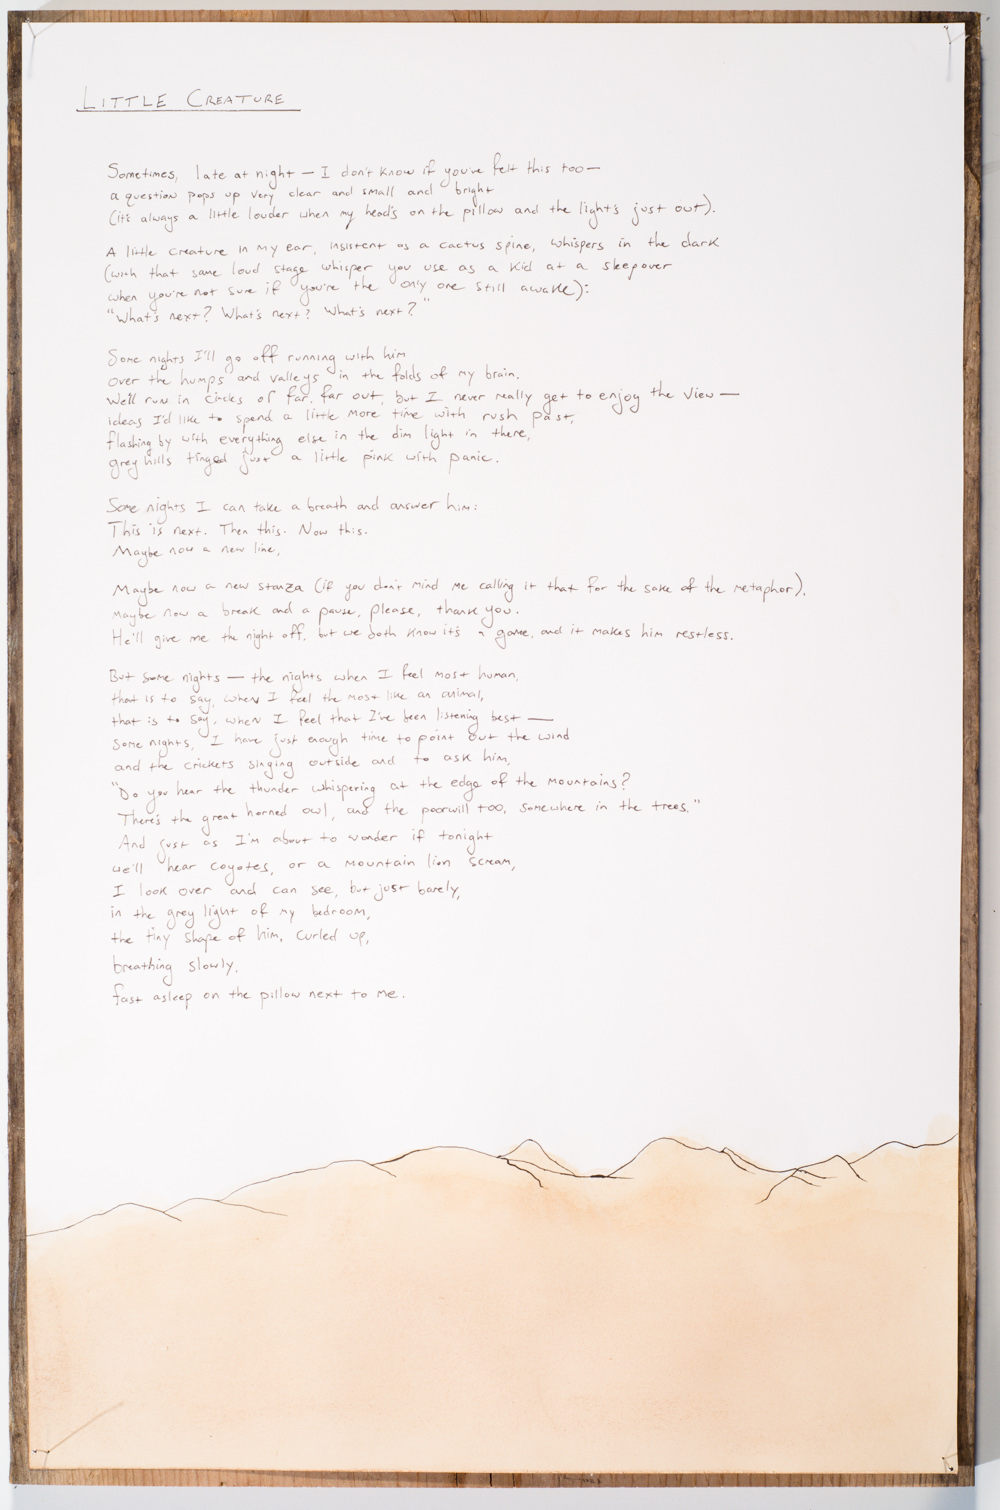 LITTLE CREATURE
Sometimes, late at night — I don't know if you've felt this too —
a question pops up very clear and small and bright
(it's always a little louder when my head's on the pillow and the light's just out).
A little creature in my ear, insistent as a cactus spine, whispers in the dark
(with that same loud stage whisper you use as a kid at a sleepover
when you're not sure if you're the only one still awake):
"What's next? What's next? What's next?"
Some nights I'll go off running with him
over the humps and valleys in the folds of my brain.
We'll run in circles or far, far out, but I never really get to enjoy the view —
ideas I'd like to spend a little more time with rush past,
flashing by with everything else in the dim light in there,
grey hills tinged just a little pink with panic.
Some nights I can take a breath and answer him:
This is next. Then this. Now this.
Maybe now a new line,
Maybe now a new stanza (if you don't mind me calling it that for the sake of the metaphor).
Maybe now a break and a pause, please, thank you.
He'll give me the night off, but we both know it's a game, and it makes him restless.
But some nights — the nights when I feel most human,
that is to say, when I feel the most like an animal,
that is to say, when I feel that I've been listening best —
some nights, I have just enough time to point out the wind
and the crickets singing outside and to ask him,
"Do you hear the thunder whispering at the edge of the mountains?
There's the great horned owl, and the poorwill too, somewhere in the trees."
And just as I'm about to wonder if tonight
we'll hear coyotes, or a mountain lion scream,
I look over and can see, but just barely,
in the grey light of my bedroom,
the tiny shape of him, curled up,
breathing slowly,
fast asleep on the pillow next to me.